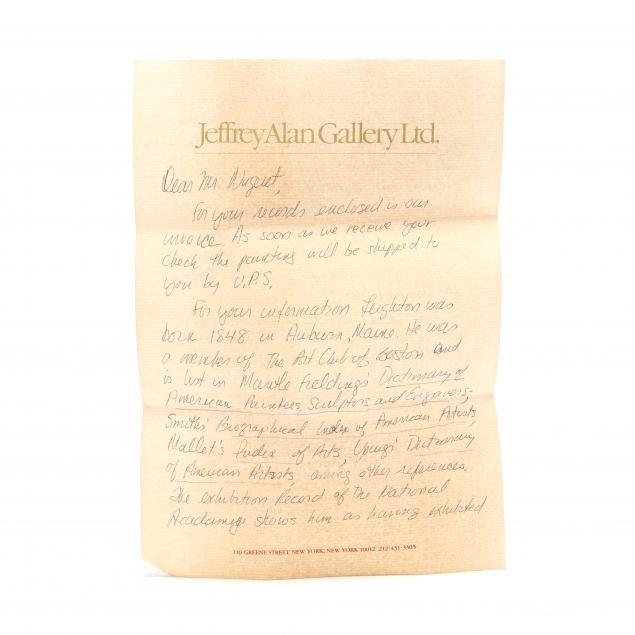 Jeffrey Alan Gallery Ltd.
Dear Mr. Nugent,
For your records enclosed is our
invoice. As soon as we receive your
check the painting will be shipped to
you by U.P.S.
For your information Leighton was
born 1848 in Auburn, Maine. He was
a member of The Art Club of Boston and
is list in Mantle Fieldings' Dictionary of
American Painters, Sculptors and Engravers,
Smith's Biographical Index of American Artists,
Mallet's Index of Arts, Youngs' Dictionary
of American Artists, among other references.
The exhibition Record of The National
Acadamy shows him as having exhibited
110 GREENE STREET, NEW YORK, NEW YORK 10012 212-431-3305